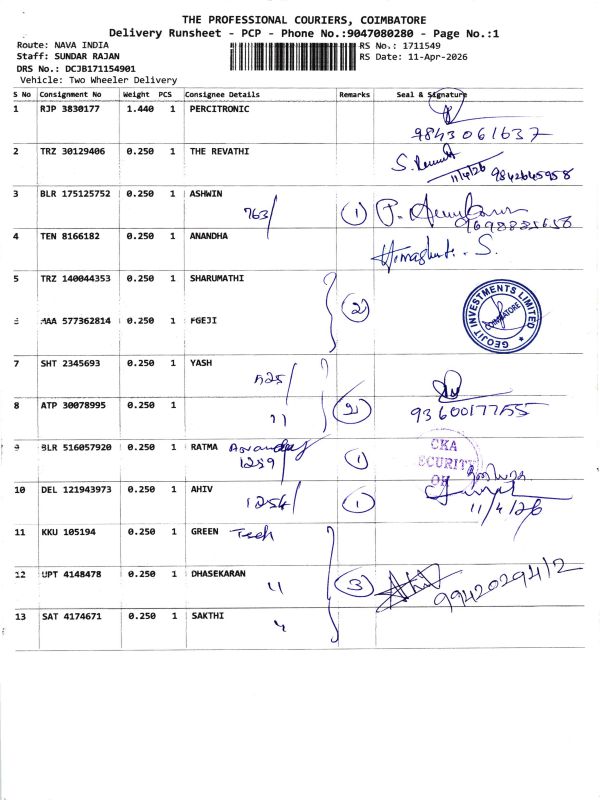 THE PROFESSIONAL COURIERS, COIMBATORE
Delivery Runsheet - PCP - Phone No.:9047080280 - Page No.:1
Route: NAVA INDIA
Staff: SUNDAR RAJAN
DRS No.: DCJB171154901
Vehicle: Two Wheeler Delivery
RS No.: 1711549
RS Date: 11-Apr-2026
S No Consignment No Weight PCS Consignee Details Remarks Seal & Signature
1 RJP 3830177 1.440 1 PERCITRONIC
9843061637
2 TRZ 30129406 0.250 1 THE REVATHI
11/4/26 9842645958
3 BLR 175125752 0.250 1 ASHWIN
763/ 1
4 TEN 8166182 0.250 1 ANANDHA
5 TRZ 140044353 0.250 1 SHARUMATHI
2
MAA 577362814 0.250 1 FGEJI
GEOJIT INVESTMENTS LIMITED
COIMBATORE
7 SHT 2345693 0.250 1 YASH
8 ATP 30078995 0.250 1
11 2
9 BLR 516057920 0.250 1 RATMA
1259 1
CKA
SECURITY
OK
10 DEL 121943973 0.250 1 AHIV
1254/ 1
11/4/26
11 KKU 105194 0.250 1 GREEN Tech
12 UPT 4148478 0.250 1 DHASEKARAN
3 9942029412
13 SAT 4174671 0.250 1 SAKTHI